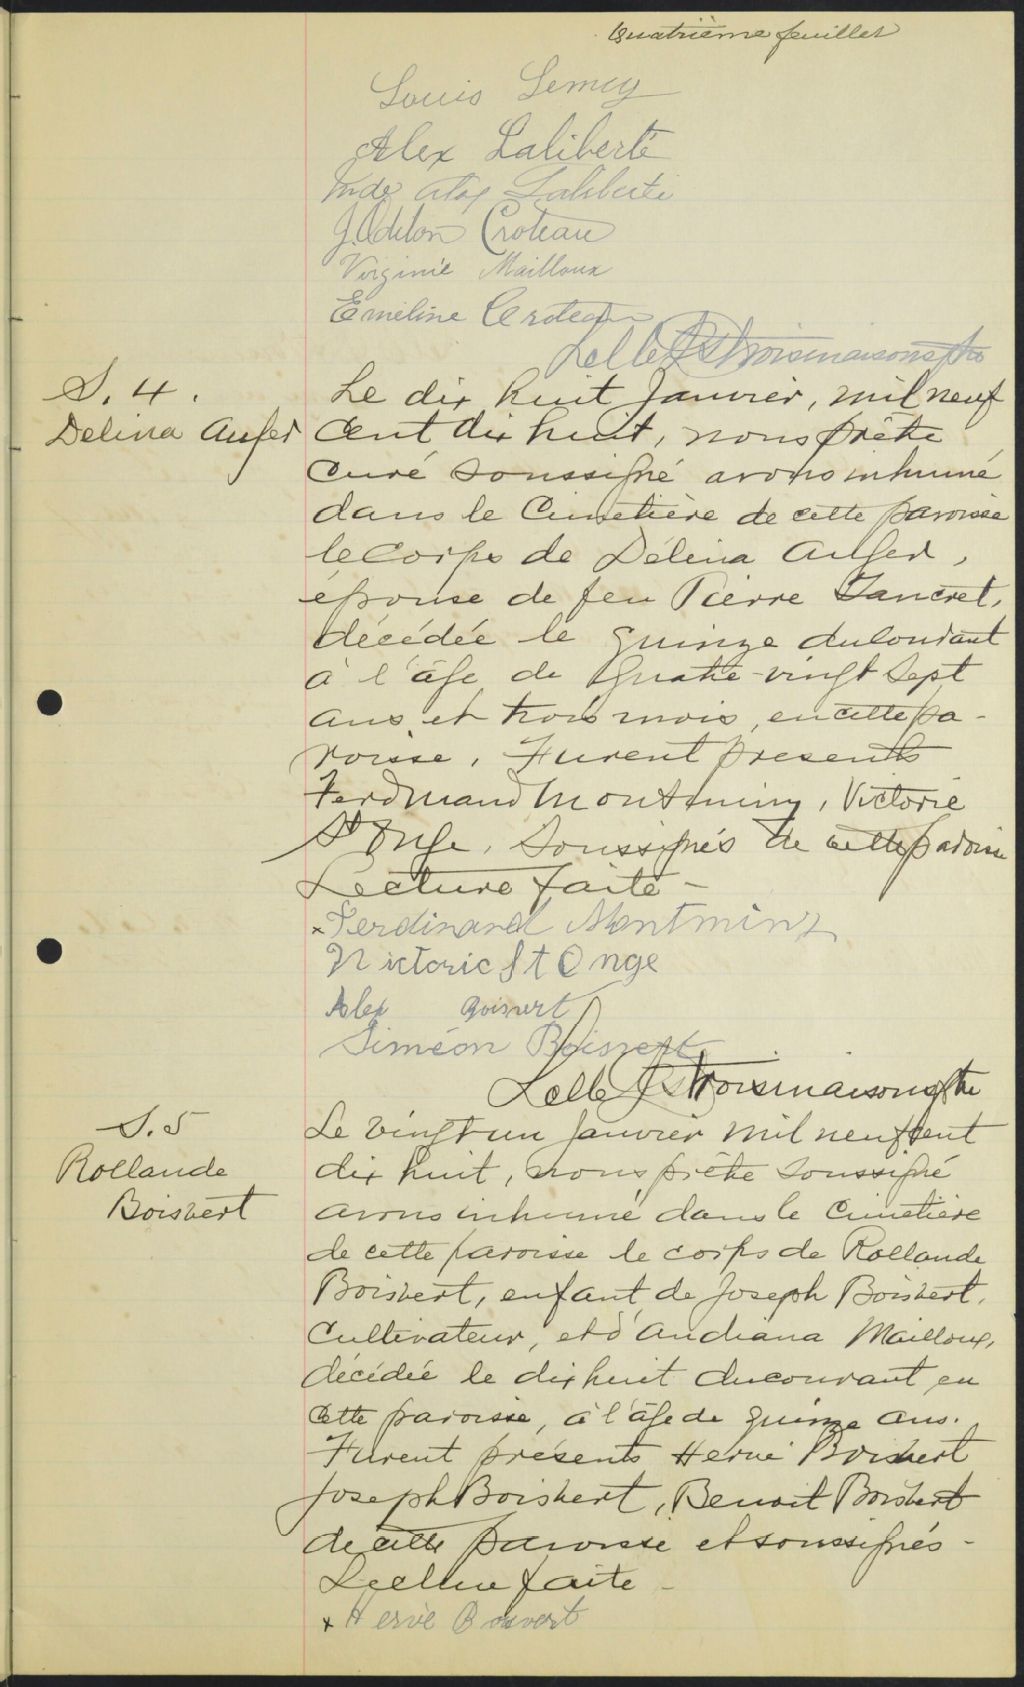 Quatrième feuillet
Louis Lemay
Alex Laliberté
Mde Alex Laliberté
J. Odilon Croteau
Virginie Mailloux
Emeline Croteau
Troismaisons ptre
S. 4.
Délina Auger
Le dix huit Janvier, mil neuf
cent dix huit, nous prêtre
curé soussigné avons inhumé
dans le Cimetière de cette paroisse
le corps de Délina Auger,
épouse de feu Pierre Tancret,
décédée le quinze du courant
à l'âge de quatre-vingt sept
ans et trois mois, en cette pa-
roisse. Furent presents
Ferdinand Montminy, Victorie
St Onge, soussignés de cette paroisse
Lecture faite -
x Ferdinand Montminy
Victorie St Onge
Alex Boisvert
Siméon Boisvert
Troismaisons ptre
S. 5
Rollande
Boisvert
Le vingt un janvier mil neuf cent
dix huit, nous prêtre soussigné
avons inhumé dans le Cimetière
de cette paroisse le corps de Rollande
Boisvert, enfant de Joseph Boisvert,
Cultivateur, et d'Andiana Mailloux,
décédée le dix huit du courant en
cette paroisse, à l'âge de quinze ans.
Furent présents Hervé Boisvert
Joseph Boisvert, Benoit Boisvert
de cette paroisse et soussignés -
Lecture faite -
x Hervé Boisvert